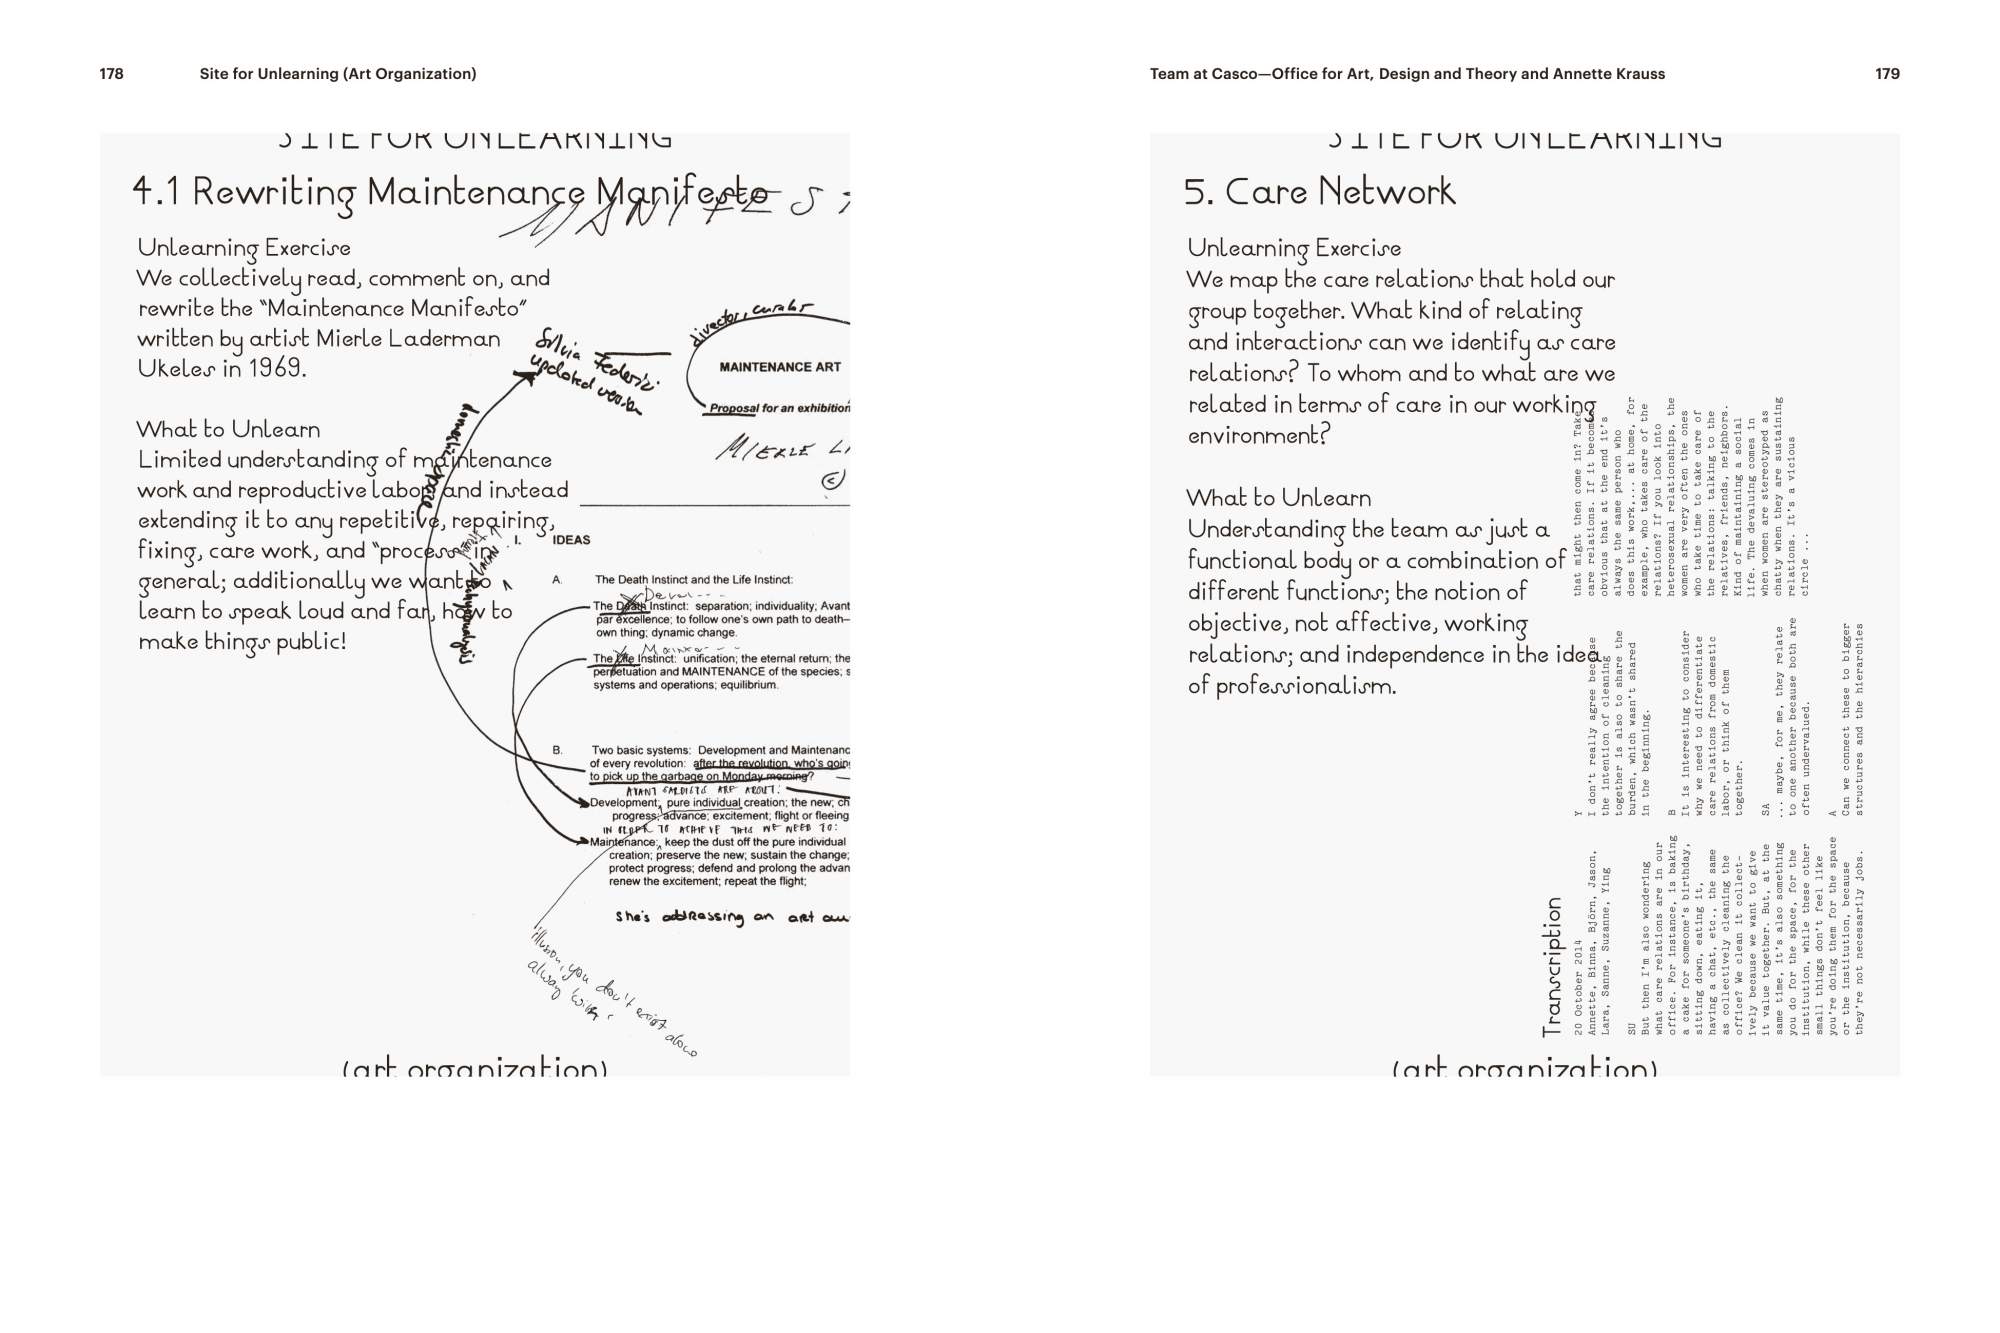 178
Site for Unlearning (Art Organization)
SITE FOR UNLEARNING
4.1 Rewriting Maintenance Manifesto
MANIFEST
Unlearning Exercise
We collectively read, comment on, and
rewrite the “Maintenance Manifesto”
written by artist Mierle Laderman
Ukeles in 1969.
What to Unlearn
Limited understanding of maintenance
work and reproductive labor, and instead
extending it to any repetitive, repairing,
fixing, care work, and “process” in
general; additionally we want to
learn to speak loud and far, how to
make things public!
director, curator
Silvia Federici
updated version
domestic space
MAINTENANCE ART
Proposal for an exhibition
MIERLE
(c)
I. IDEAS
A. The Death Instinct and the Life Instinct:
The Death Instinct: separation; individuality; Avant
par excellence; to follow one's own path to death—
own thing; dynamic change.
The Life Instinct: unification; the eternal return; the
perpetuation and MAINTENANCE of the species; s
systems and operations; equilibrium.
B. Two basic systems: Development and Maintenanc
of every revolution: after the revolution, who's goin
to pick up the garbage on Monday morning?
AVANT GARDISTS ARE ABOUT:
Development: pure individual creation; the new; ch
progress; advance; excitement; flight or fleeing
IN ORDER TO ACHIEVE THIS WE NEED TO:
Maintenance: keep the dust off the pure individual
creation; preserve the new; sustain the change;
protect progress; defend and prolong the advan
renew the excitement; repeat the flight;
she's addressing an art au
illusion, you don't exist alone
always
(art organization)
Team at Casco—Office for Art, Design and Theory and Annette Krauss
179
SITE FOR UNLEARNING
5. Care Network
Unlearning Exercise
We map the care relations that hold our
group together. What kind of relating
and interactions can we identify as care
relations? To whom and to what are we
related in terms of care in our working
environment?
What to Unlearn
Understanding the team as just a
functional body or a combination of
different functions; the notion of
objective, not affective, working
relations; and independence in the idea
of professionalism.
Transcription
20 October 2014
Annette, Binna, Björn, Jason,
Lara, Sanne, Suzanne, Ying
SU
But then I'm also wondering
what care relations are in our
office. For instance, is baking
a cake for someone's birthday,
sitting down, eating it,
having a chat, etc., the same
as collectively cleaning the
office? We clean it collect-
ively because we want to give
it value together. But, at the
same time, it's also something
you do for the space, for the
institution, while these other
small things don't feel like
you're doing them for the space
or the institution, because
they're not necessarily jobs.
Y
I don't really agree because
the intention of cleaning
together is also to share the
burden, which wasn't shared
in the beginning.
B
It is interesting to consider
why we need to differentiate
care relations from domestic
labor, or think of them
together.
SA
... maybe, for me, they relate
to one another because both are
often undervalued.
A
Can we connect these to bigger
structures and the hierarchies
that might then come in? Take
care relations. If it becomes
obvious that at the end it's
always the same person who
does this work,... at home, for
example, who takes care of the
relations? If you look into
heterosexual relationships, the
women are very often the ones
who take time to take care of
the relations: talking to the
relatives, friends, neighbors.
Kind of maintaining a social
life. The devaluing comes in
when women are stereotyped as
chatty when they are sustaining
relations. It's a vicious
circle ...
(art organization)